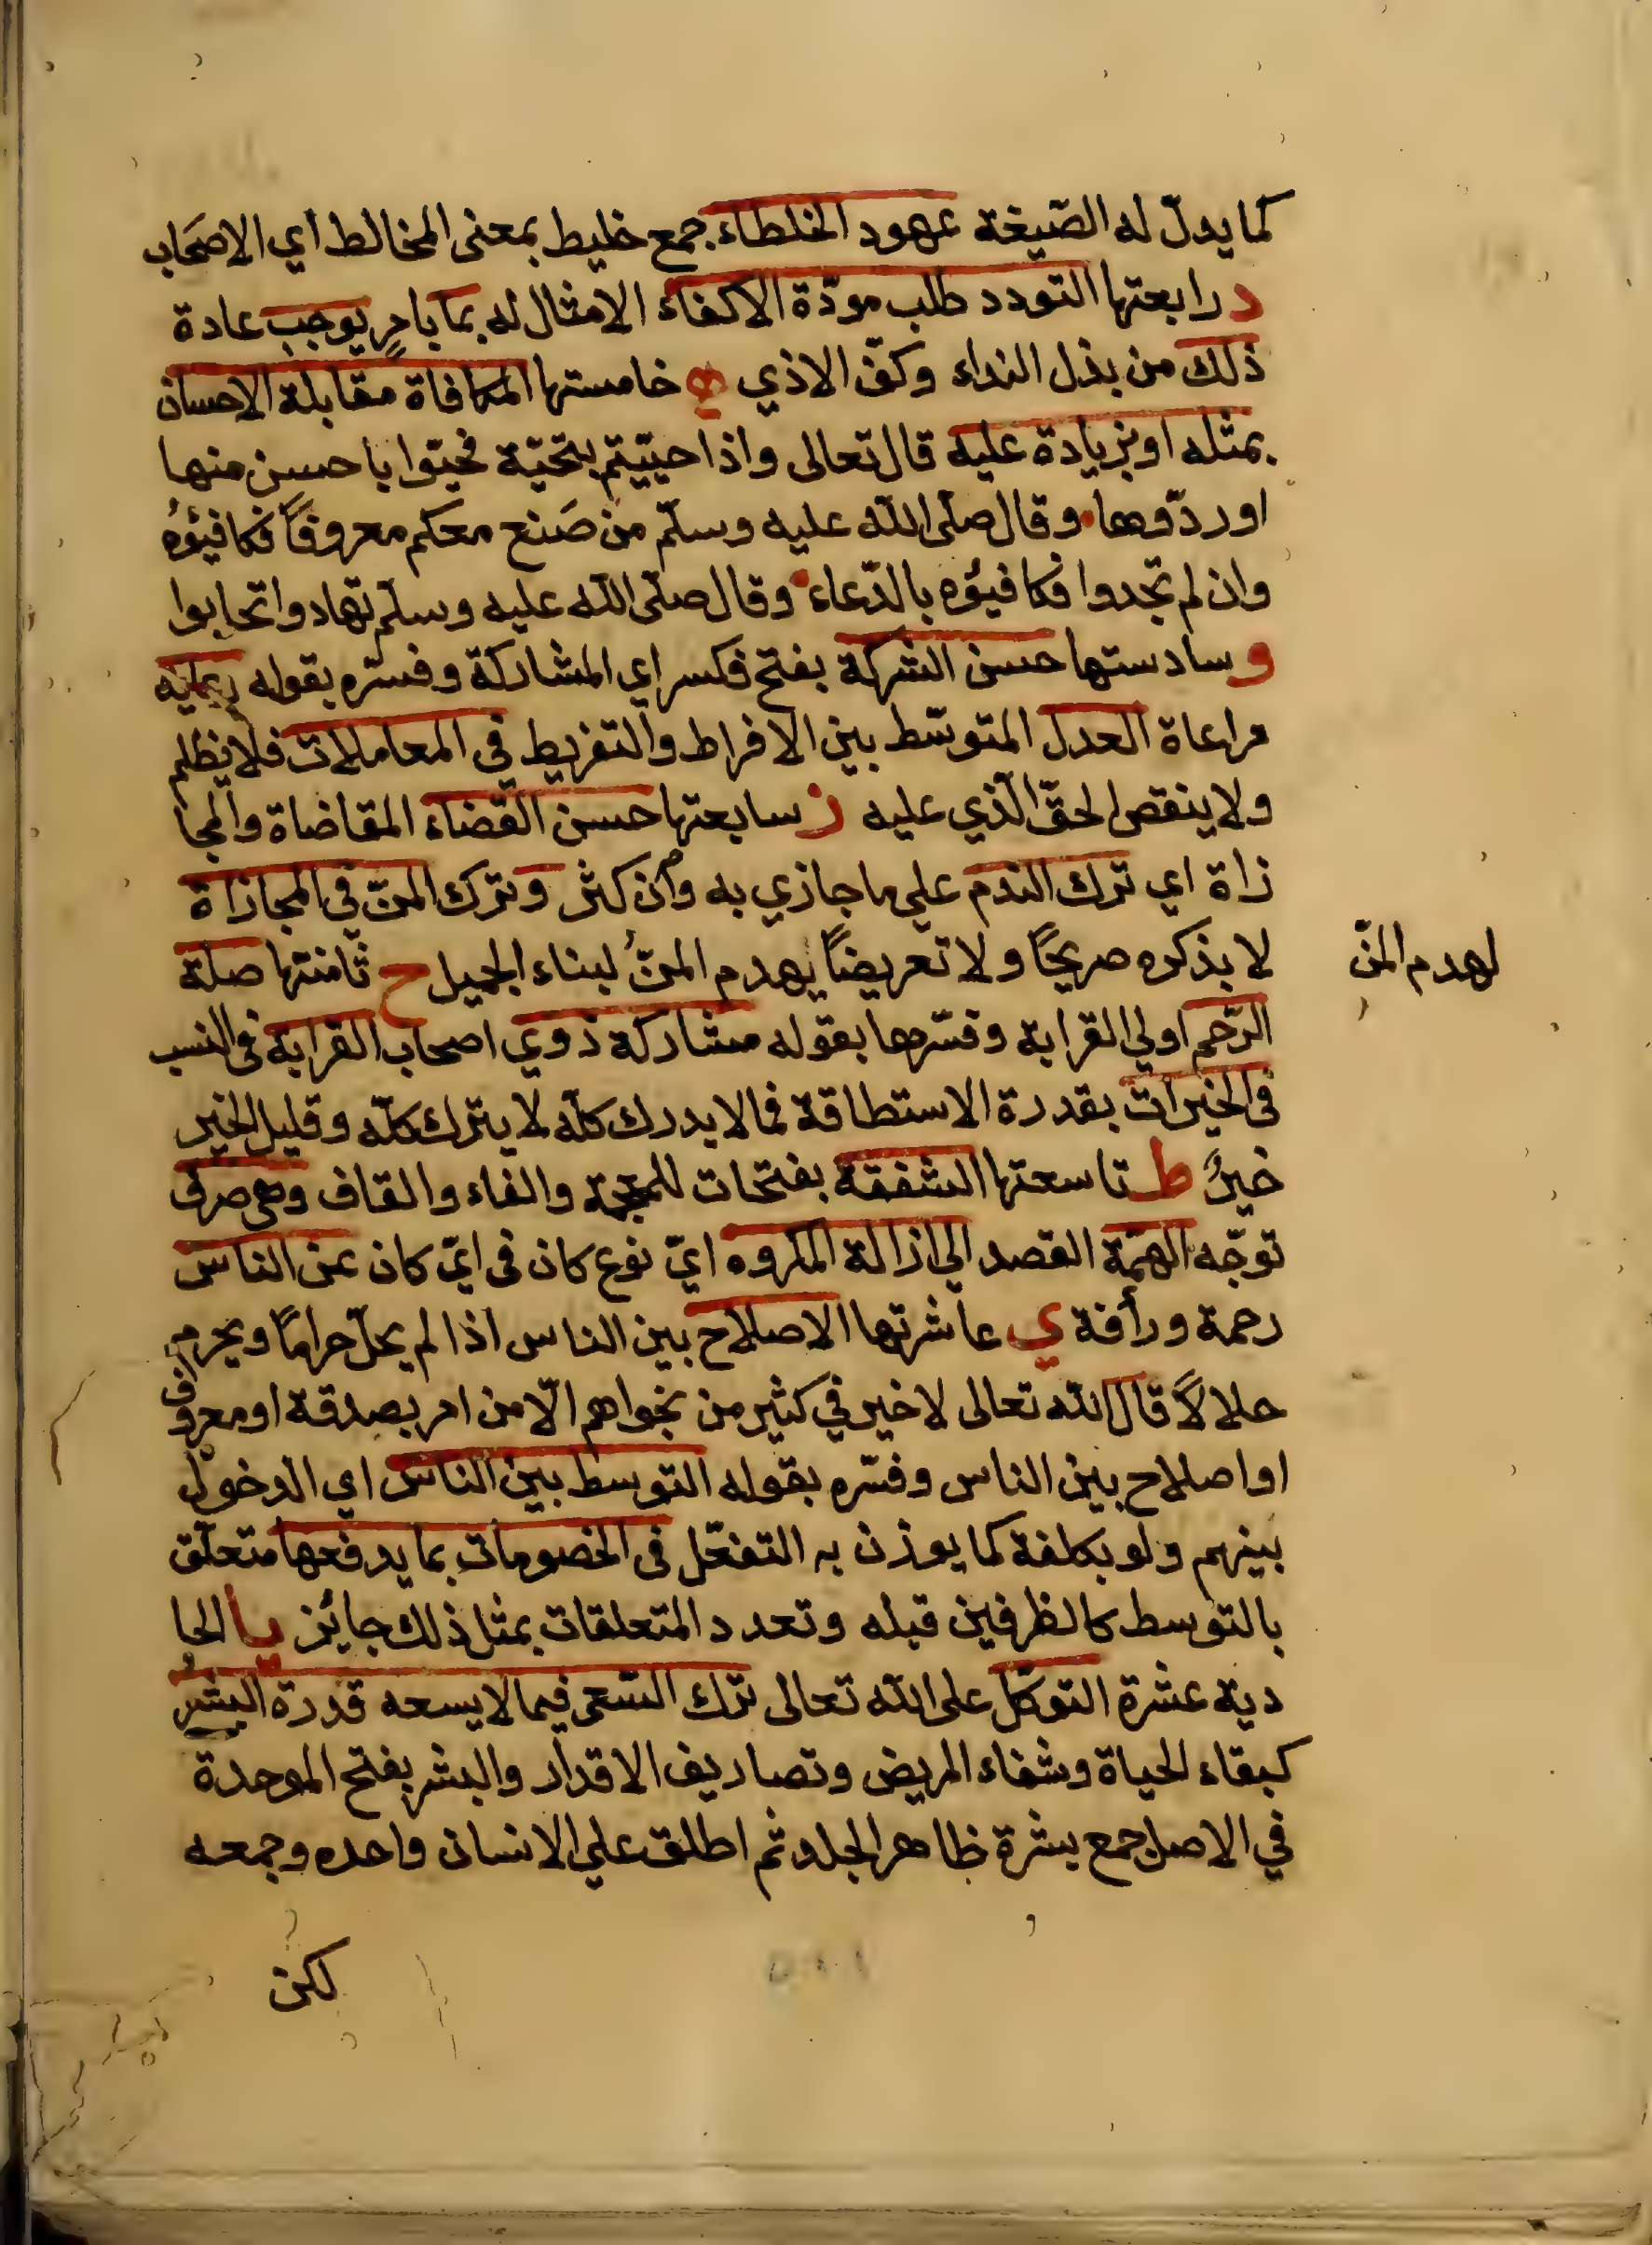 كما يدلّ له الصّيغة عهود الخلطاء جمع خليط بمعنى المخالط اي الاصحاب
د رابعتها التودد طلب مودّة الاكفاء الامثال له بما بامرٍ يوجب عادة
ذلك من بذل النداء وكفّ الاذي ه خامستها المكافاة مقابلة الاحسان
بمثله او بزيادة عليه قال تعالى واذا حيّيتم بتحيّة فحيّوا باحسن منها
او ردّوها وقال صلّى اللّه عليه وسلّم من صَنع معكم معروفاً فكافيؤه
وان لم تجدوا فكافيؤه بالدّعاء وقال صلّى اللّه عليه وسلّم تهادوا تحابوا
و سادستها حسن الشركة بفتح فكسر اي المشاركة وفسّره بقوله
مراعاة العدل المتوسّط بين الافراط والتفريط في المعاملات فلا يظلم
ولا ينقص الحقّ الّذي عليه ز سابعتها حسن القضاء المقاضاة والمجا
زاة اي ترك الندم على ما جازي به وان كثر وترك المنّ في المجازاة
لا يذكره صريحًا ولا تعريضاً يهدم المنّ لبناء الجميل ح ثامنتها صلة
لهدم المنّ
الرّحم اولي القرابة وفسّرها بقوله مشاركة ذوي اصحاب القرابة في النسب
في الخيرات بقدرة الاستطاقة فما لا يدرك كلّه لا يترك كلّه وقليل الخير
خيرٌ ط تاسعتها الشفقة بفتحات للمعجمة والفاء والقاف وهي صرف
توجّه الهمّة القصد الي ازالة المكروه ايّ نوع كان في ايّ كان عن الناس
رحمة ورأفة ي عاشرتها الاصلاح بين الناس اذا لم يحلّ حرامًا ويحرم
حلالاً قال اللّه تعالى لا خير في كثير من نجواهم الّا من امر بصدقة او معروف
او اصلاح بين الناس وفسّره بقوله التوسط بين الناس اي الدخول
بينهم ولو بكلفة كما يوذن به التفعّل في الخصومات بما يدفعها متعلّق
بالتوسط كالظرفين قبله وتعدد المتعلقات بمثل ذلك جائز يا الحا
دية عشرة التوكّل على اللّه تعالى ترك السّعى فيما لا يسعه قدرة البشر
كبقاء الحياة وشفاء المريض وتصاريف الاقدار والبشر بفتح الموحدة
في الاصل جمع بشرة ظاهر الجلد ثم اطلق علي الانسان واحده وجمعه
لكن